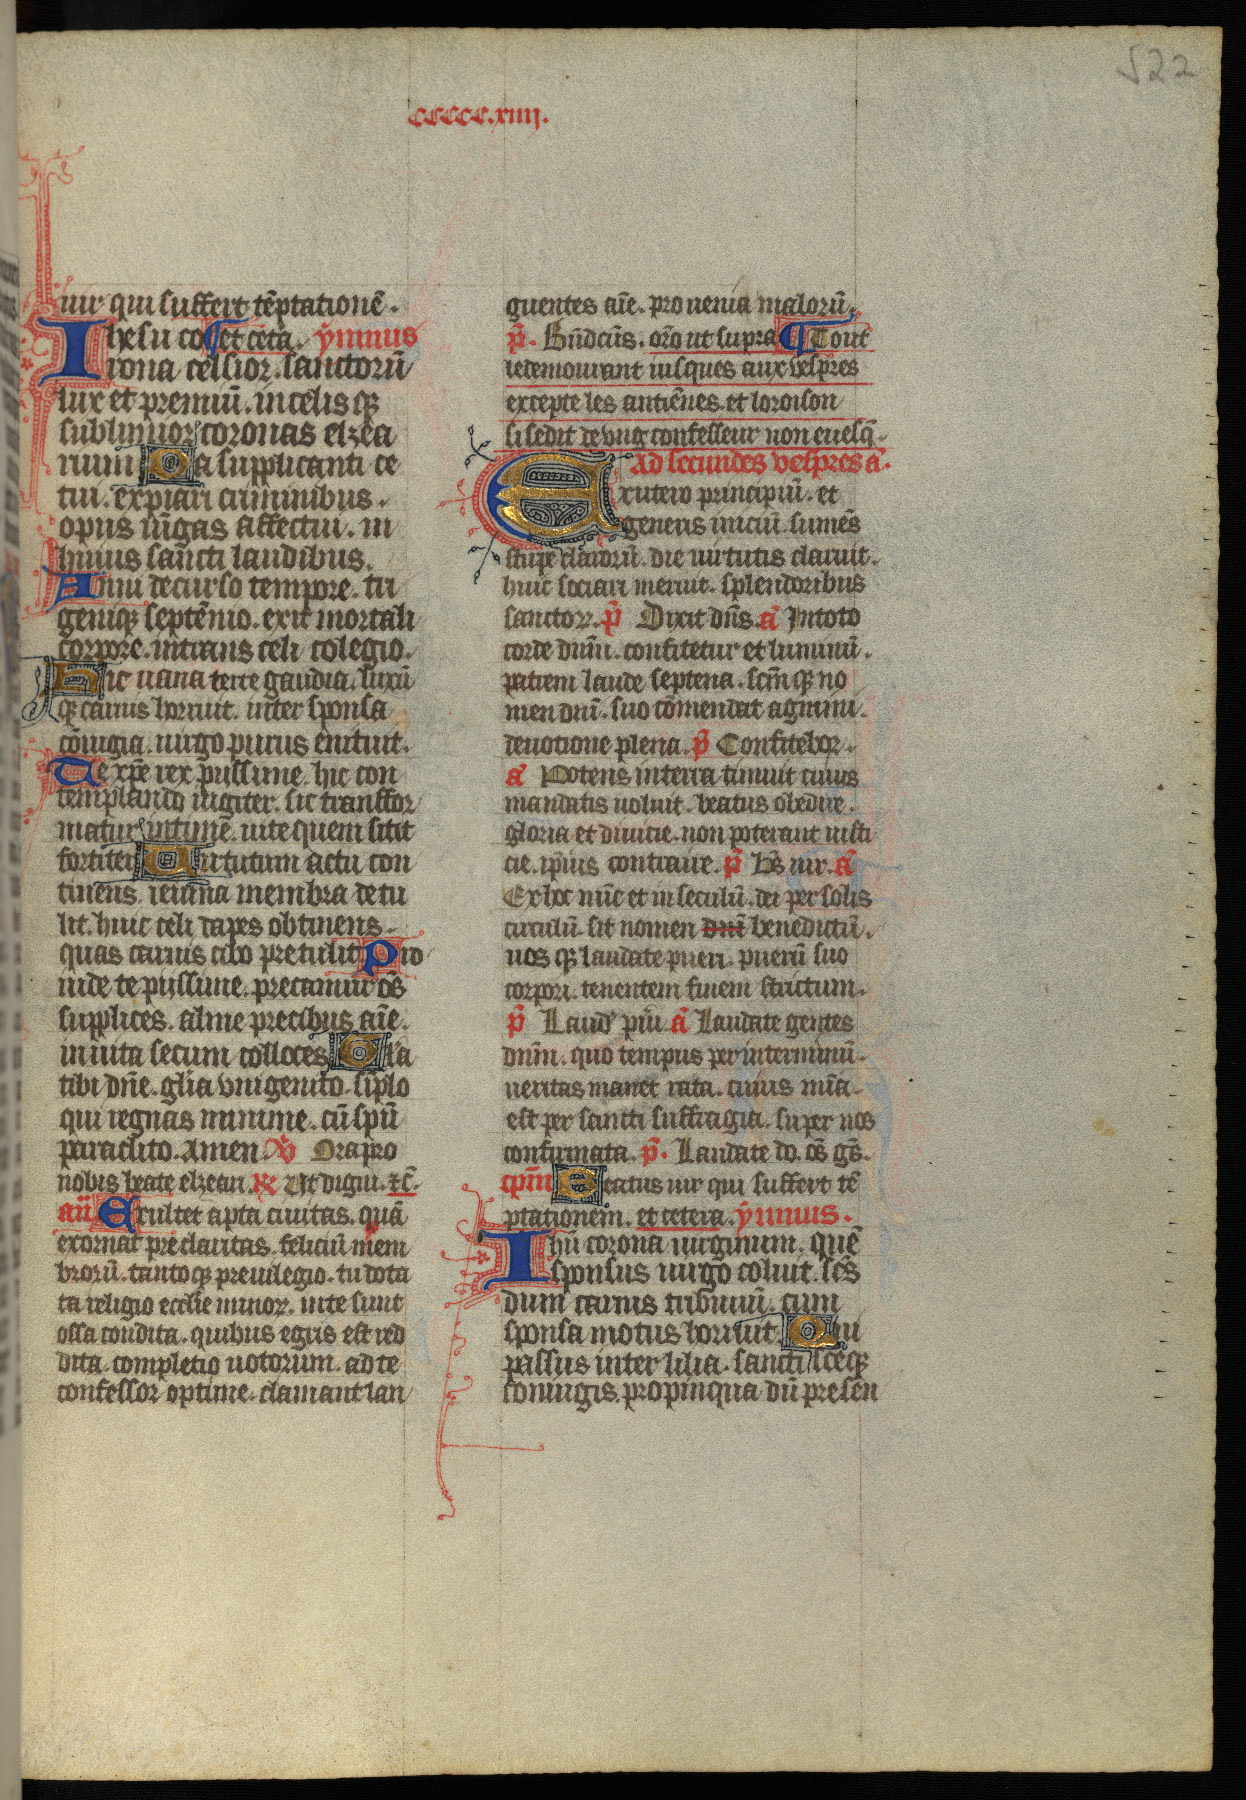 522
ccccc.xiiii.
uir qui suffert tẽptationẽ.
Ihesu co et cetã. ymnus
rona celsior. sanctorũ
lux et premiũ. in celis qꝫ
sublimior coronas elzea
rium Da supplicanti ce
tui. expiari criminibus.
opus nr̃gas affectui. in
huius sancti laudibus.
Anni decurso tempore. tri
genique septẽnio. exit mortali
corpore. intrans celi colegio.
Hic uana terre gaudia. luxũ
qꝫ carnis horruit. inter sponsa
cõiugia. uirgo purus enituit.
Te xp̃e rex pijssime. hic con
templando iugiter. sic transfor
matur intimẽ. ut te quem sitit
fortiter Uirtutum actu con
tinens. ieiuna membra detu
lit. huic celi dapes obtinens.
quas carnis cibo pretulit Pro
inde te pijssime. precamur oẽs
supplices. alme precibus aĩe.
in uita secum colloces Gl'a
tibi dñe. gl̃ia unigenito. siplo
qui regnas numine. cũ spũ
paraclito. Amen. ꝟ Ora pro
nobis beate elzeari. ℟ Ut digni. ⁊c̃.
añ Exultet apta ciuitas. quã
exornat preclaritas. feliciũ mem
brorũ. tantoqꝫ preuilegio. tu dota
ta religio ecclie minoꝝ. in te sunt
ossa condita. quibus egris est red
dita. completio uotorum. ad te
confessor optime. clamant lan
guentes aĩe. pro uenia malorũ.
p̃. Bñdcũs. orõ ut supra Tout
le demourant iusques aux vespres
excepte les antiẽnes. et loroison
si se dit de vng confesseur non euesq̃.
Ad secundes vespres ã.
Ex utero principiũ. et
generis iniciũ. sumẽs
stirpe clarorũ. die uirtutis claruit.
huic sociari meruit. splendoribus
sanctoꝝ. p̃ Dixit dñs. ã In toto
corde dnm̃. confitetur et luminũ.
patrem laude septena. scm̃ qꝫ no
men dnĩ. suo cõmendat agmini.
deuotione plena. p̃ Confitebor.
ã Potens in terra timuit cuius
mandatis uoluit. beatus obedire.
gloria et diuicie. non poterant iusti
cie. ip̃ius contraire. p̃ Bs̃ uir. ã
Ex hoc nũc et in seculũ. dei per solis
circulũ. sit nomen dnĩ benedictũ.
nos qꝫ laudate pueri. puerũ suo
corpori. tenentem finem strictum.
p̃ Laud' puĩ. ã Laudate gentes
dnm̃. quo tempus per interminũ.
ueritas manet rata. cuius mĩa.
est per sancti suffragia. super nos
confirmata. p̃. Laudate do. oẽs gẽs.
cpm̃ Beatus uir qui suffert tẽ
ptationem. et cetera. ymnus.
Ihũ corona uirginum. quẽ
sponsus uirgo coluit. sẽs
dum carnis tribuuũ. cum
sponsa motus horruit. Qui
passus inter lilia. sancti sceqꝫ
coniugis. propinqua dũ presen